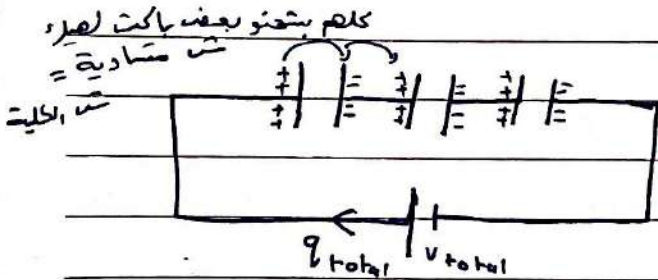 كلهم بشحنو بعض بالحث لهيك
ش متساوية =
ش الكلية
++ = ++ = ++ =
++ = ++ = ++ =
q total
v total